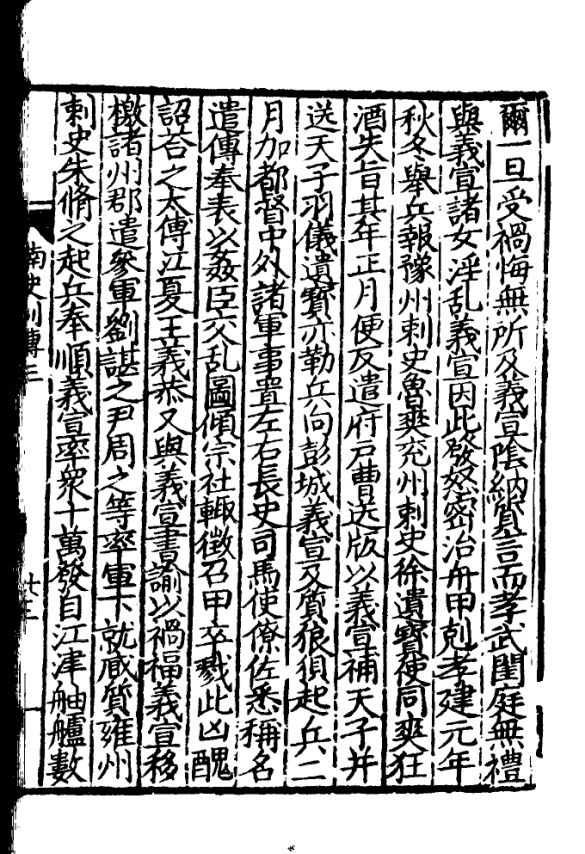 爾一旦受禍悔無所及義宣陰納質言而孝武閨庭無禮
與義宣諸女淫乱義宣因此發怒密治舟甲剋孝建元年
秋冬舉兵報豫州刺史魯爽兖州刺史徐遺寶使同爽狂
酒失旨其年正月便反遣府户曹送版以義宣補天子并
送天子羽儀遺寶亦勒兵向彭城義宣及質狼狽起兵二
月加都督中外諸軍事置左右長史司馬使僚佐悉稱名
遣傳奉表以姦臣交乱圖傾宗社輙徵召甲卒戮此凶醜
詔荅之太傅江夏王義恭又與義宣書諭以禍福義宣移
檄諸州郡遣參軍劉諶之尹周之等率軍下就臧質雍州
刺史朱脩之起兵奉順義宣率衆十萬發自江津舳艫數
南史列傳三
十三